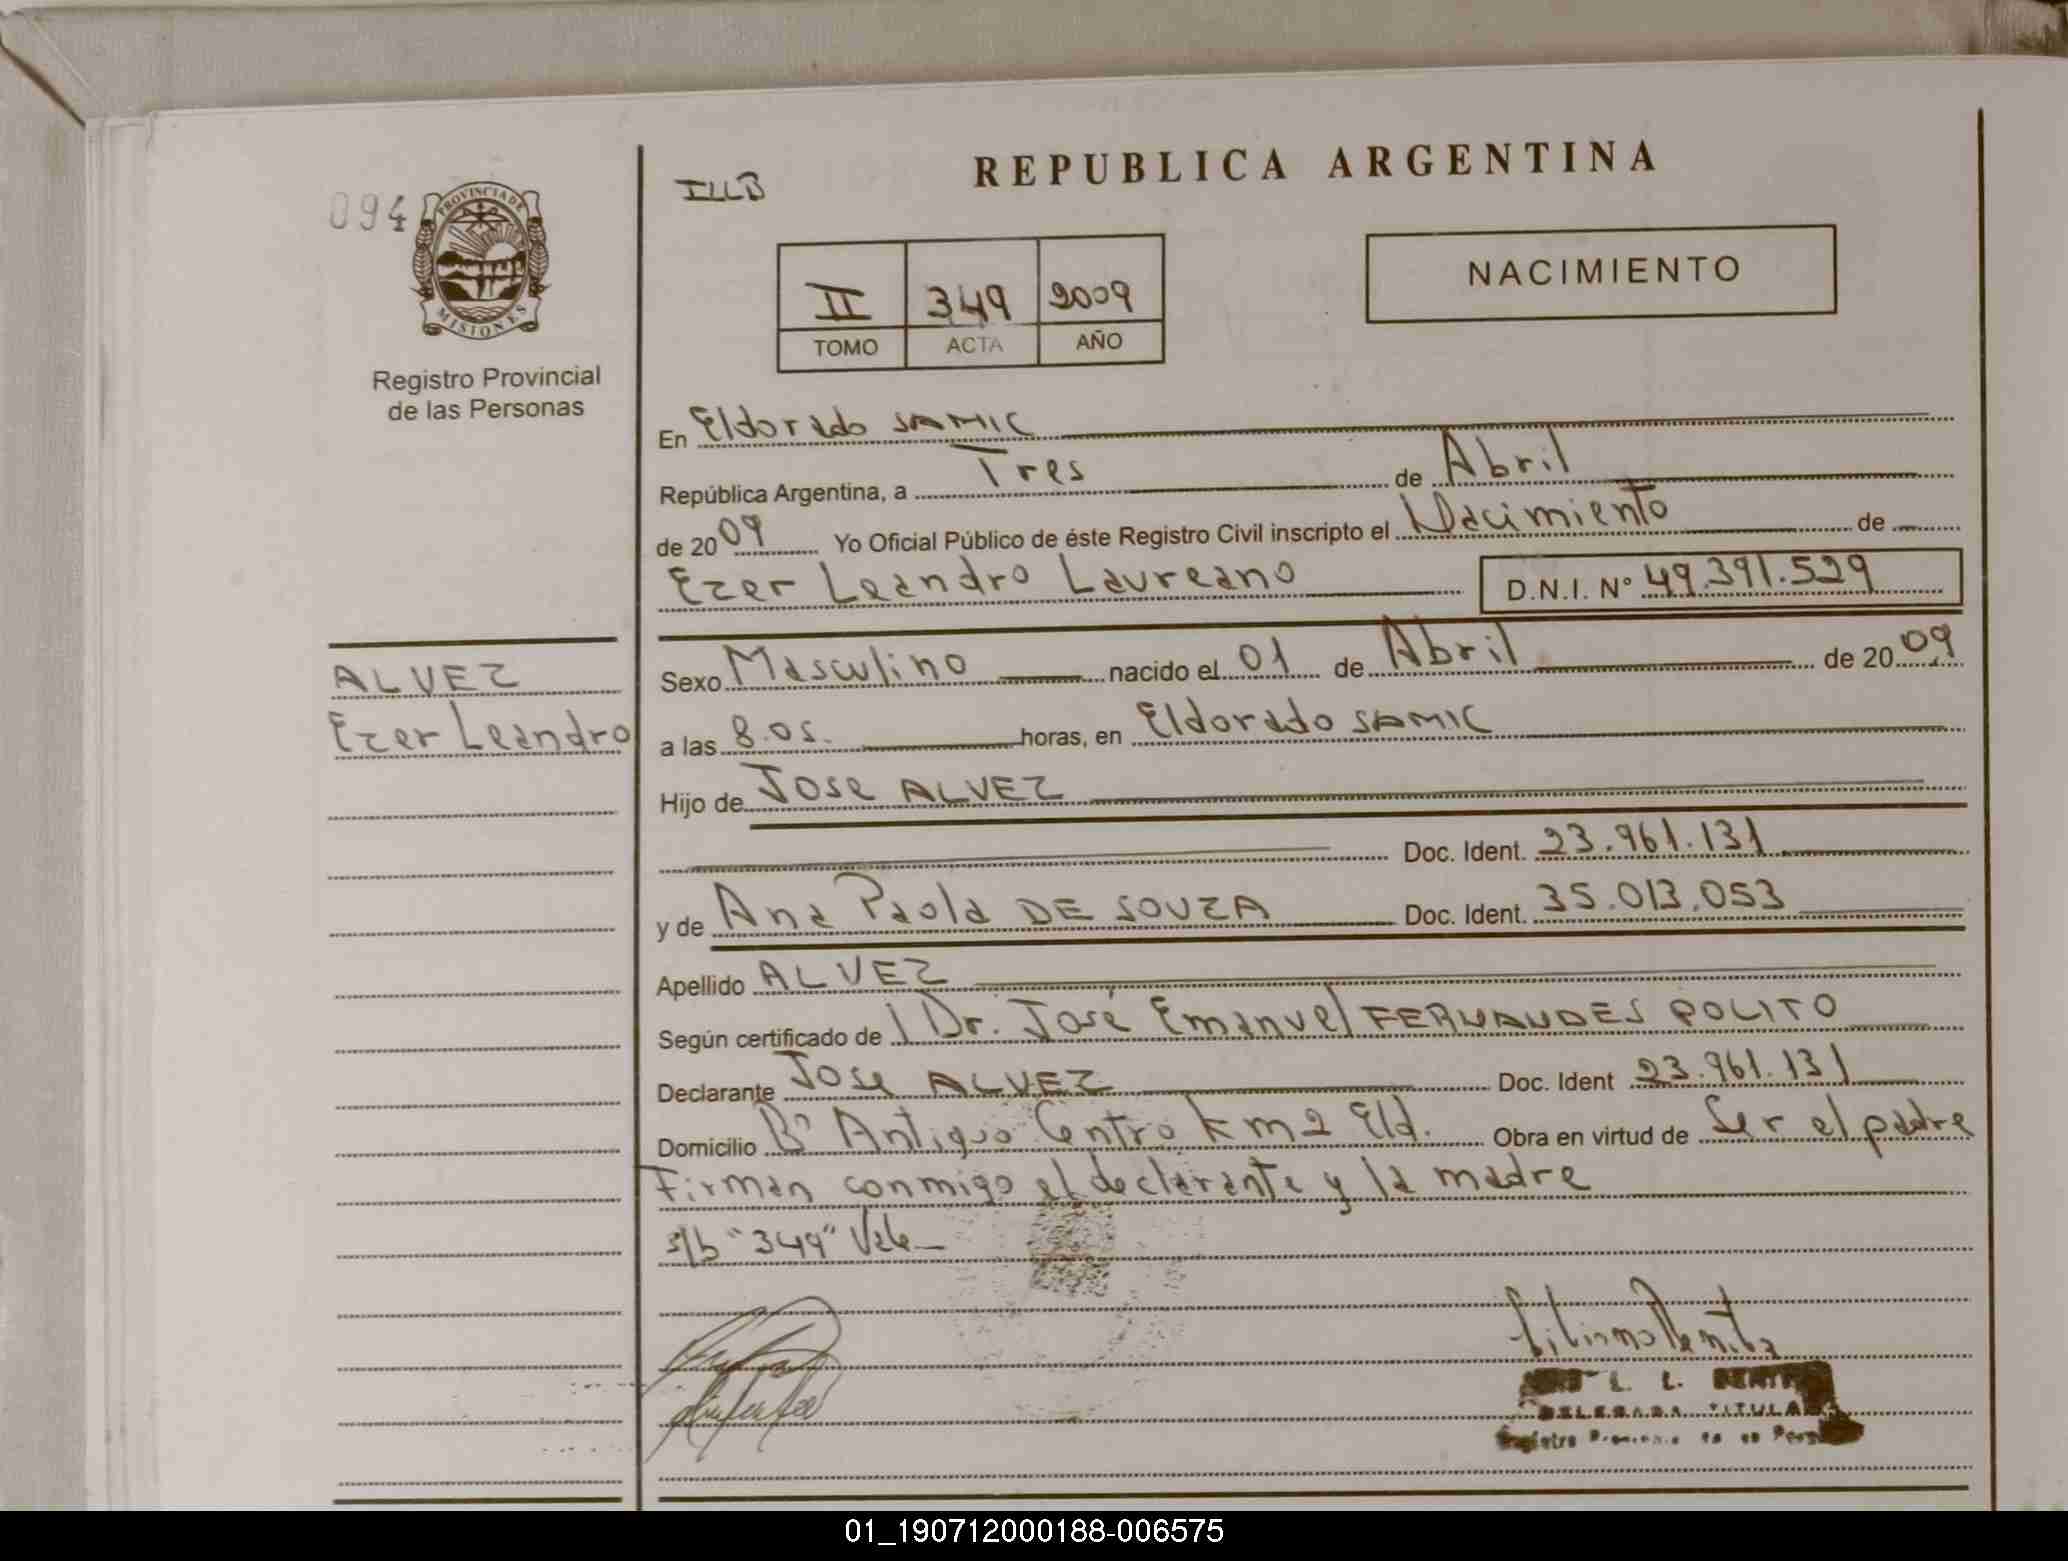 094
PROVINCIA DE
MISIONES
Registro Provincial
de las Personas
ILLB
REPUBLICA ARGENTINA
II 349 2009
TOMO ACTA AÑO
NACIMIENTO
En Eldorado SAMIC
República Argentina, a Tres de Abril
de 20 09 Yo Oficial Público de éste Registro Civil inscripto el Nacimiento de
Ezer Leandro Laureano D.N.I. Nº 49.391.529
ALVEZ
Ezer Leandro
Sexo Masculino nacido el 01 de Abril de 20 09
a las 8.05. horas, en Eldorado SAMIC
Hijo de Jose ALVEZ
Doc. Ident. 23.961.131
y de Ana Paola DE SOUZA Doc. Ident. 35.013.053
Apellido ALVEZ
Según certificado de Dr. José Emanuel FERNANDES POLITO
Declarante Jose ALVEZ Doc. Ident 23.961.131
Domicilio Bº Antiguo Centro km 2 Eld. Obra en virtud de Ser el padre
Firman conmigo el declarante y la madre
s/b "349" Vale
L. L. BENITEZ
DELEGADA TITULAR
01_190712000188-006575